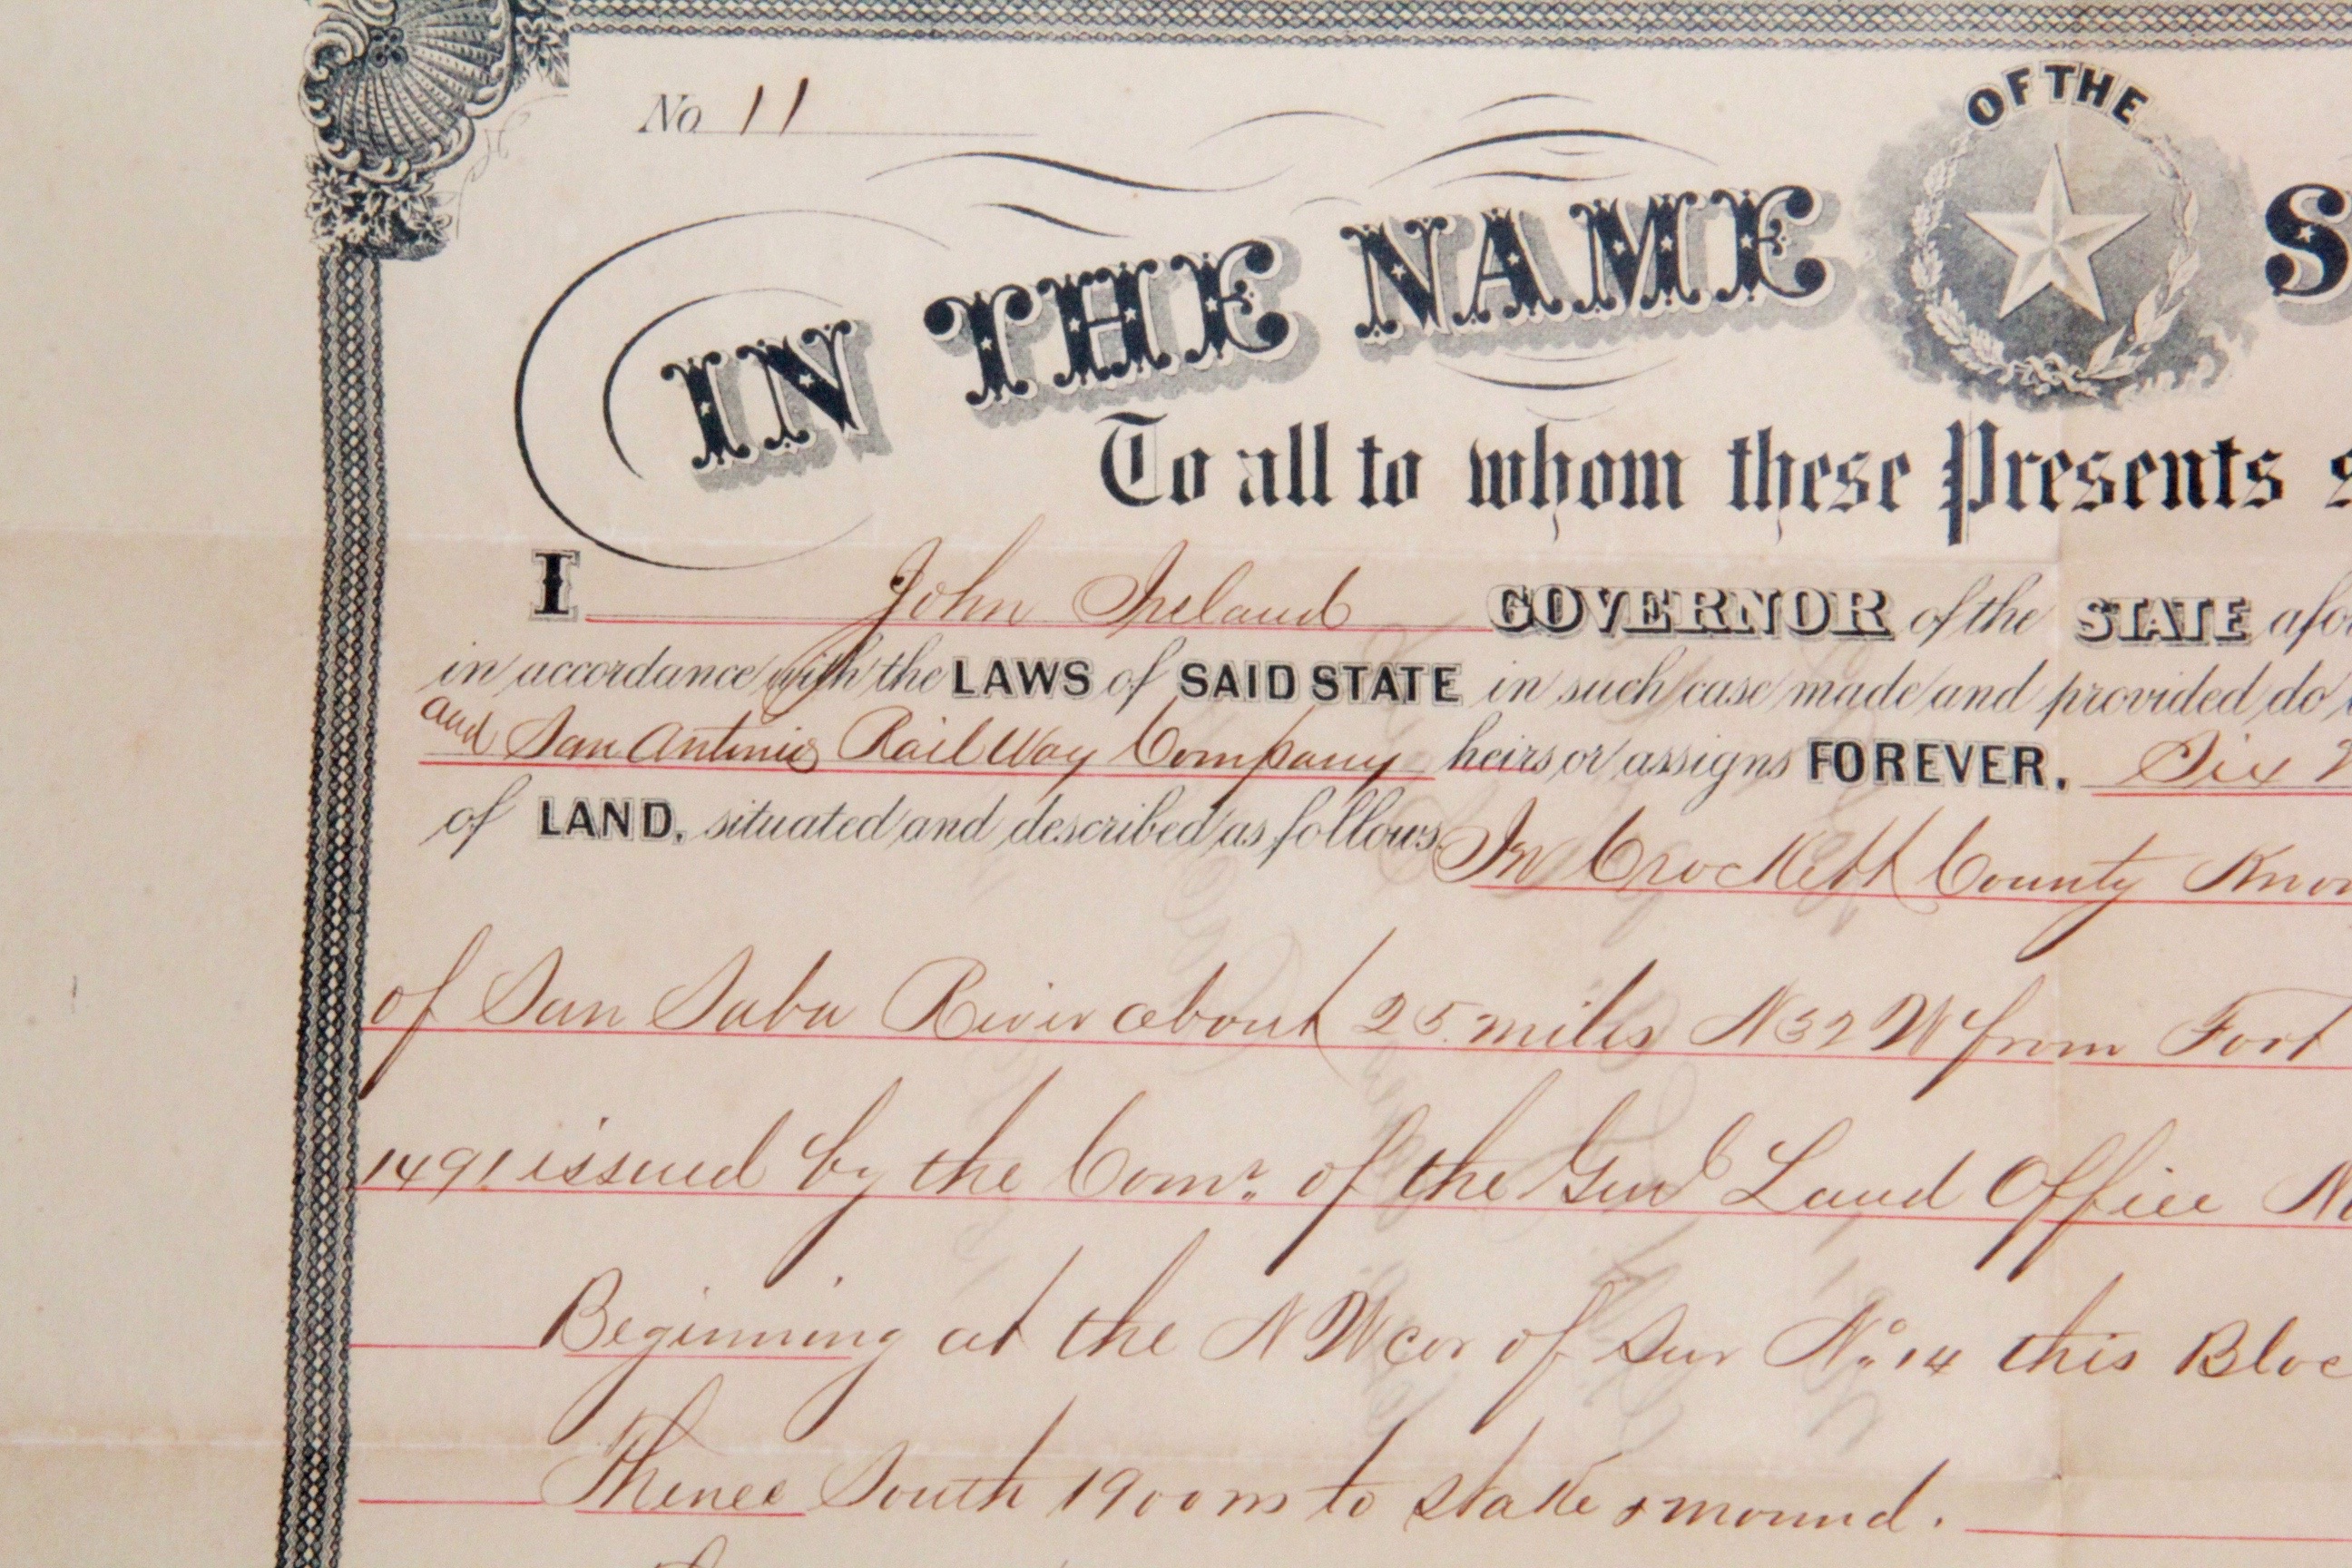 No 11
OF THE
IN THE NAME S
To all to whom these Presents s
I John Ireland GOVERNOR of the STATE afo
in accordance with the LAWS of SAID STATE in such case made and provided do
and San Antonio RailWay Company heirs or assigns FOREVER. Six
of LAND, situated and described as follows. In Crockett County Know
of San Saba River about 25 miles N 32 W from Fort
1491 issued by the Comr. of the Genl Land Office
Beginning at the N W cor of Sur No. 14 this Bloc
Thence South 1900 vs to stake & mound.